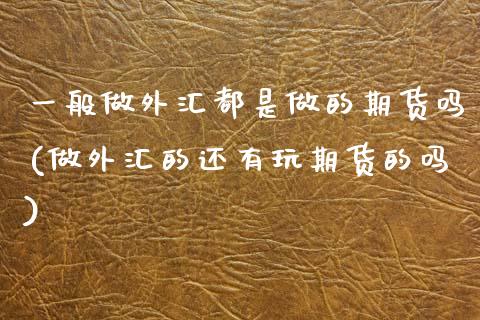 一般做外汇都是做的期货吗
(做外汇的还有玩期货的吗
)